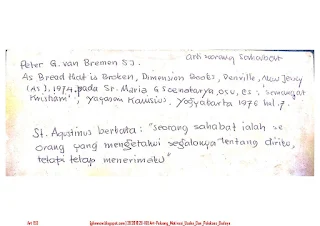 arti seorang sahabat
Peter G. van Breman SJ.
As Bread that is Broken, Dimension Books, Denville, New Jersey
(AS), 1974. pada Sr. Maria G Soenatarya, OSU, es: Semangat
Kristiani', Yayasan Kanisius, Yogyakarta 1976 hal. 9.
St. Agustinus berkata: "seorang sahabat ialah se
orang yang mengetahui segalanya tentang dirimu,
tetapi tetap menerimamu"